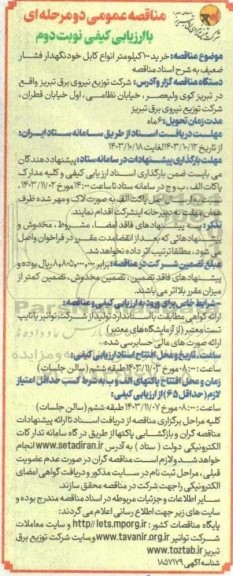 مناقصه عمومی دو مرحله ای
با ارزیابی کیفی نوبت دوم
موضوع مناقصه: خرید ۱۰۰ کیلومتر انواع کابل خودنگهدار فشار
ضعیف به شرح اسناد مناقصه
دستگاه مناقصه گزار و آدرس: شرکت توزیع نیروی برق تبریز واقع
در تبریز کوی ولیعصر، خیابان نظامی، اول خیابان قطران،
شرکت توزیع نیروی برق تبریز
مدت زمان تحویل: ۶ ماه
مهلت دریافت اسناد از طریق سامانه ستاد ایران:
از تاریخ ۱۴۰۳/۱۰/۱۲ لغایت ۱۴۰۳/۱۰/۱۸
مهلت بارگذاری پیشنهادات در سامانه ستاد: پیشنهاد دهندگان
می بایست ضمن بارگذاری اسناد ارزیابی کیفی و کلیه مدارک
پاکات الف، ب و ج در سامانه ستاد تا ساعت ۱۴:۰۰ مورخ ۱۴۰۳/۱۱/۰۲
پاکات الف به صورت لاک و مهر شده ظرف
مهلت به دبیرخانه اینشرکت اقدام نمایند.
تذکر: به پیشنهادهای فاقد امضا، مشروط، مخدوش و
پیشنهادهائی که بعد از انقضا مدت مقرر در فراخوان واصل
می شود، مطلقا ترتیب اثر داده نخواهد شد.
مبلغ تضمین شرکت در مناقصه: برابر ۸,۸۰۵,۰۰۰,۰۰۰ ریال بوده و
پیشنهاد های فاقد تضمین، تضمین مخدوش، تضمین کمتر از
میزان مقرر بلااثر می باشند.
-شرایط خاص برای ورود به ارزیابی کیفی و مناقصه:
ارائه گواهی مطابقت با استاندارد تولید از شرکت توانیر یا تایپ
تست معتبر (از آزمایشگاه های معتبر)
ارائه صورت های مالی حسابرسی شده
ساعت، تاریخ و محل افتتاح اسناد ارزیابی کیفی:
ساعت ۰۸:۰۰ مورخ ۱۴۰۳/۱۱/۰۳ طبقه ششم (سالن جلسات)
زمان و محل افتتاح پاکتهای الف و ب به شرط کسب حداقل امتیاز
لازم (حداقل ۶۵) از ارزیابی کیفی:
ساعت ۰۸:۰۰ مورخ ۱۴۰۳/۱۱/۰۷ طبقه ششم (سالن جلسات)
کلیه مراحل برگزاری مناقصه از دریافت اسناد تا ارائه پیشنهادات
مناقصه گران و بازگشایی پاکتها از طریق درگاه سامانه تدارکات
الکترونیکی دولت (ستاد) به آدرس www.setadiran.ir انجام
خواهد شد و لازم است مناقصه گران در صورت عدم عضویت
قبلی، مراحل ثبت نام در سایت مذکور و دریافت گواهی امضای
الکترونیکی را جهت شرکت در مناقصه محقق سازند.
سایر اطلاعات و جزئیات مربوطه در اسناد مناقصه مندرج بوده و
سایت های زیر جهت اطلاع رسانی اعلام می گردند:
پایگاه مناقصات کشور: http//iets.mporg.ir و سایت معاملات
شرکت توانیر www.tavanir.org.ir و سایت شرکت توزیع برق
تبریز www.toztab.ir
شناسه آگهی ۱۸۵۷۱۷۹